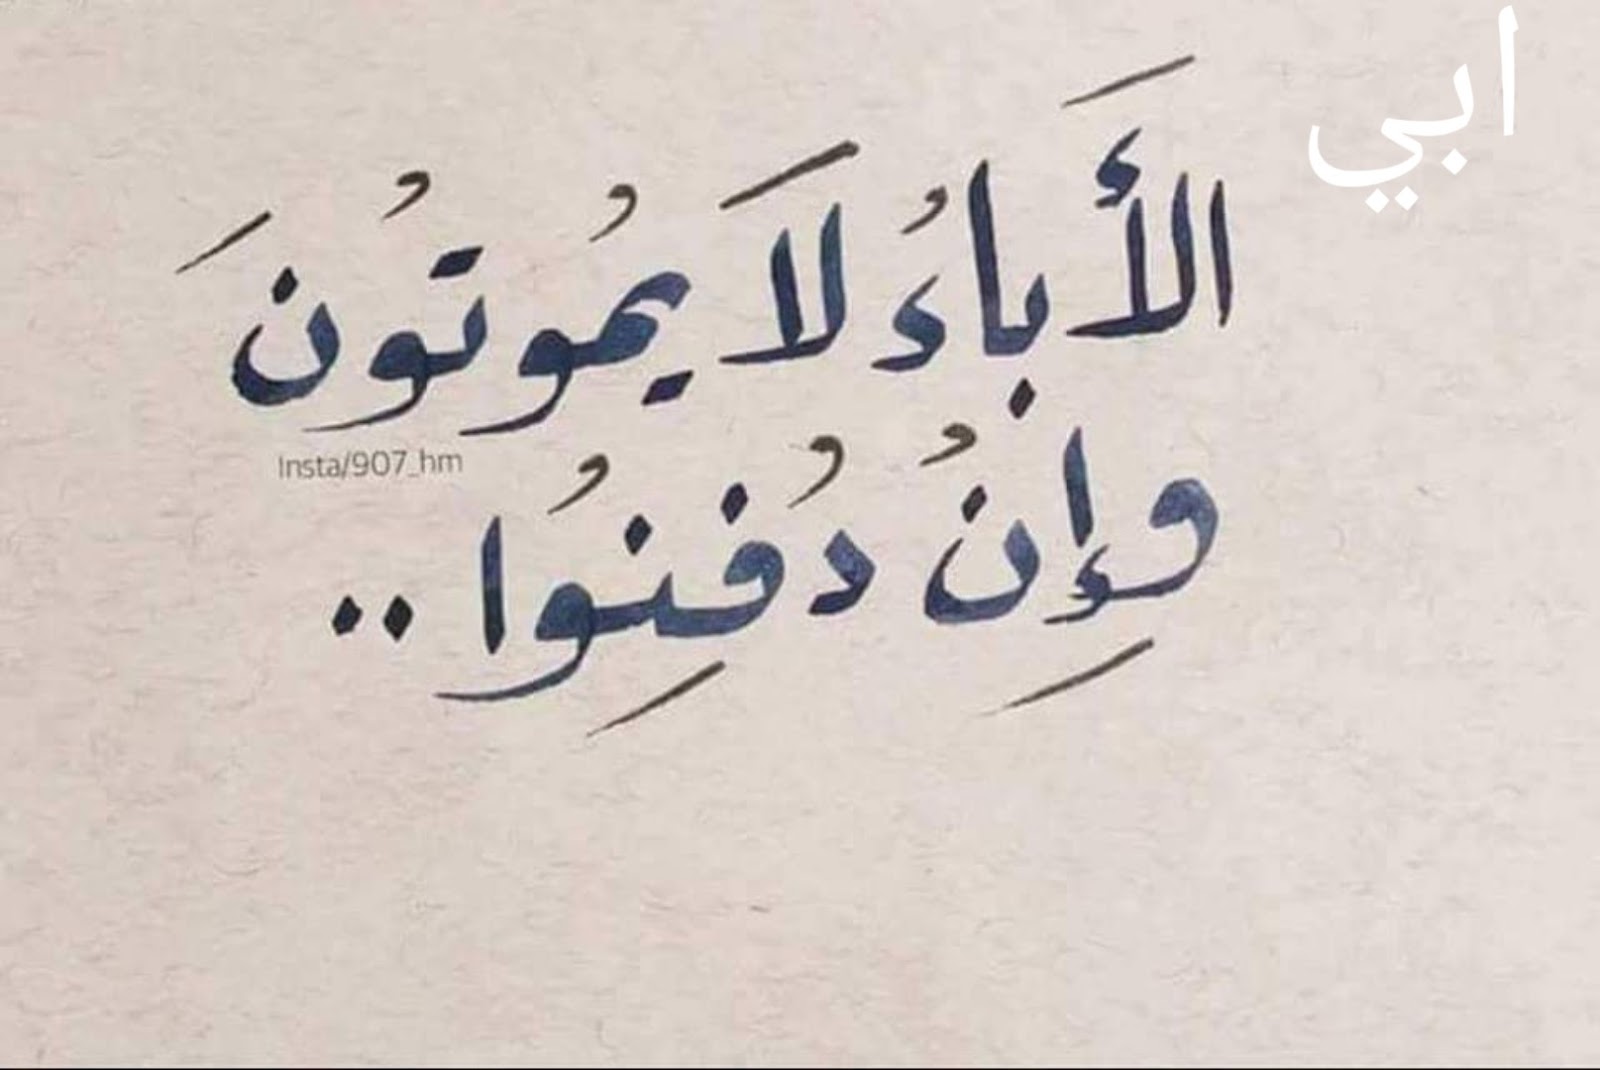 ابي
الأَباءُ لاَ يمُوتُونَ
Insta/907_hm
وإِنُ دُفِنُوا ..